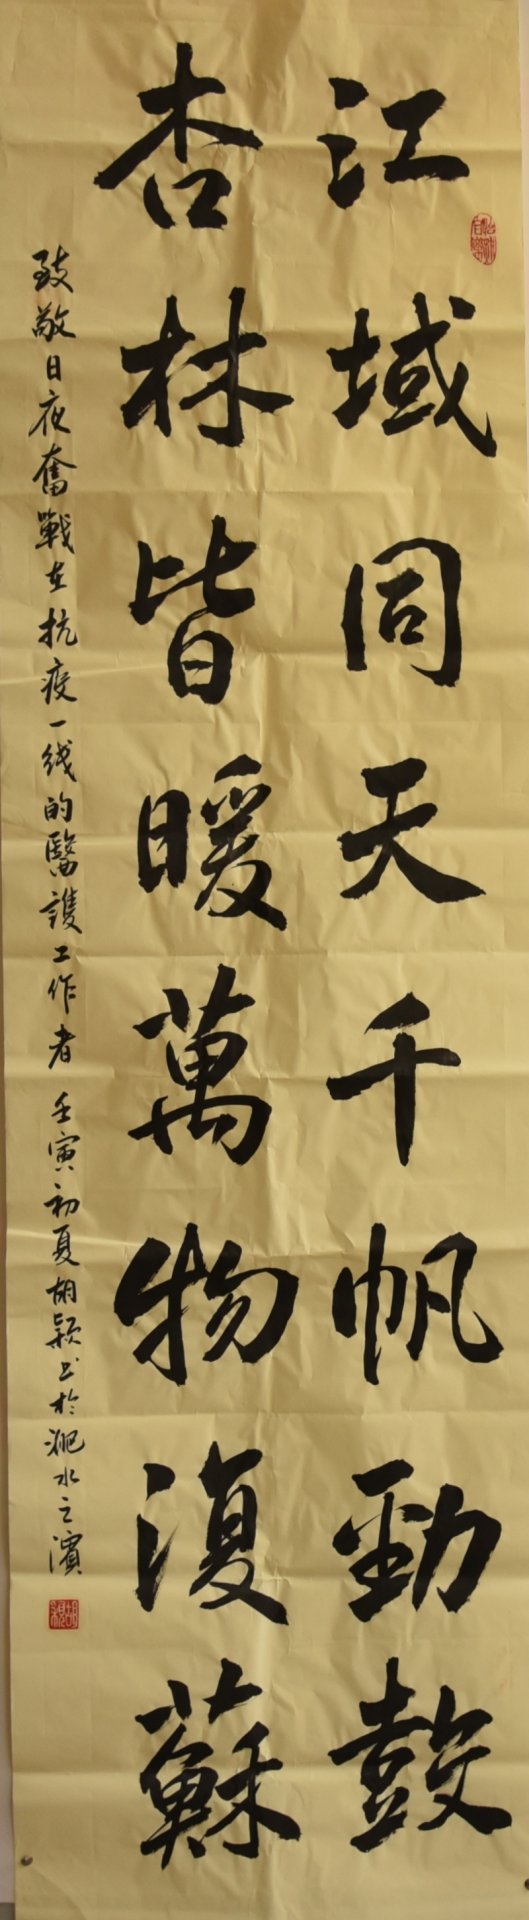 江域同天千帆勁鼓
杏林皆暖萬物復蘇
致敬日夜奮戰在抗疫一线的醫護工作者 壬寅初夏胡颖书於淝水之濱